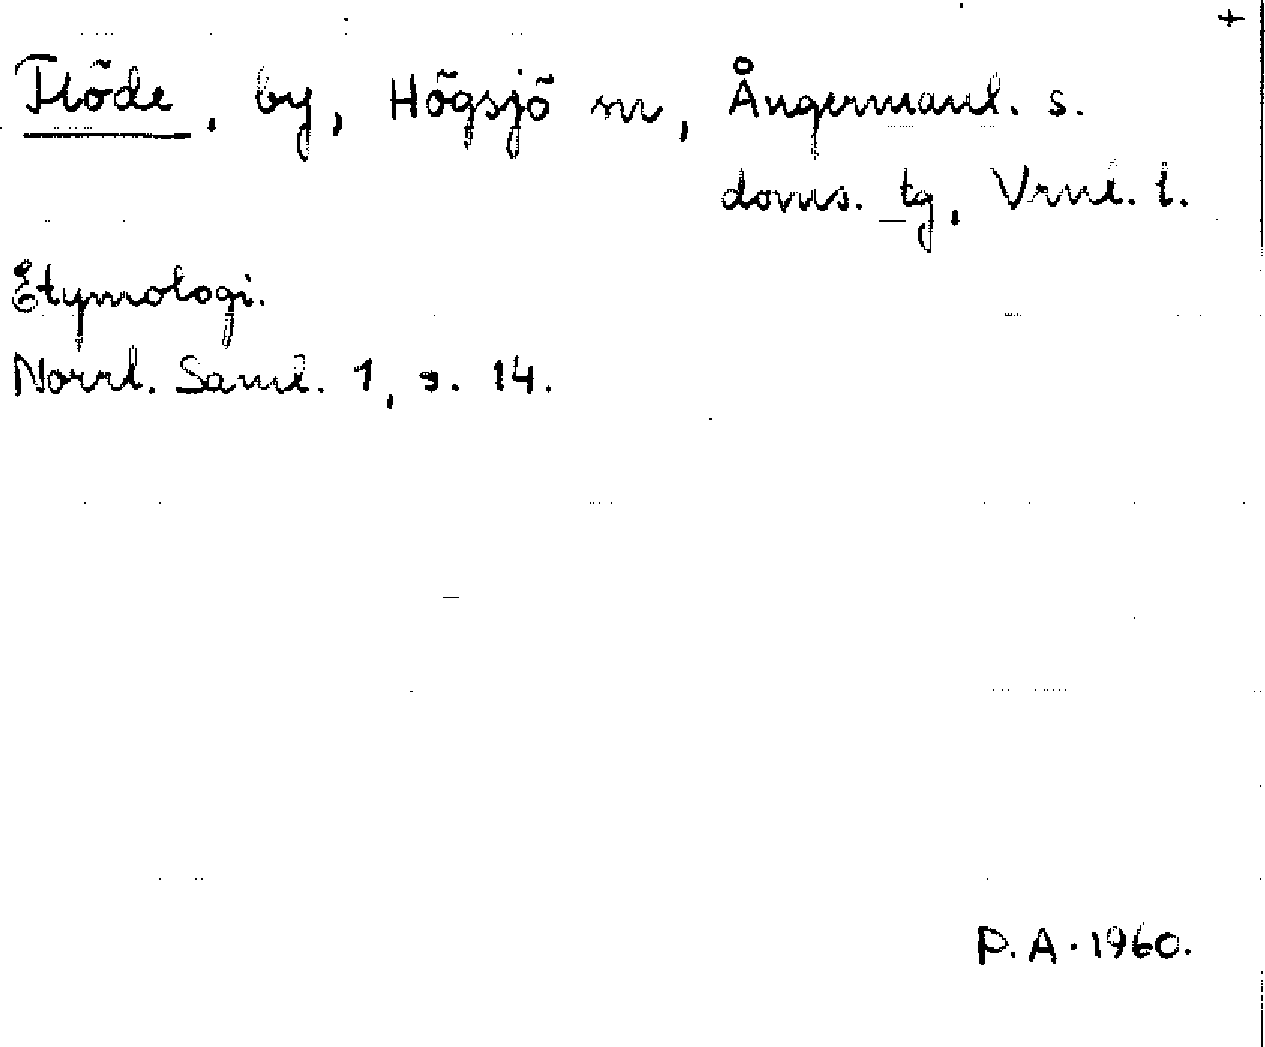 +
Flöde, by, Högsjö sn, Ångermanl. s.
doms. tg, Vrnl. l.
Etymologi.
Norrl. Saml. 1, s. 14.
P.A. 1960.